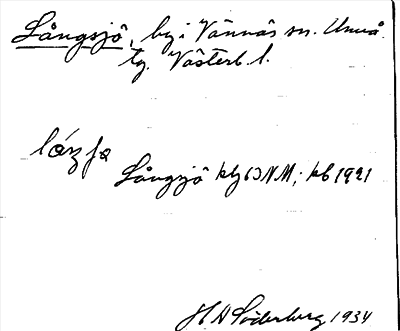 Långsjö, by i Vännäs sn. Umeå
tg. Västerb l.
lǻŋʃø
Långsjö kbj 63 NM; kb 1921
H A Söderberg 1934